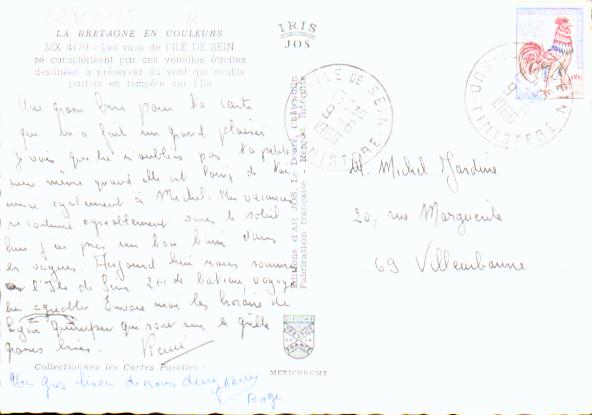 LA BRETAGNE EN COULEURS
MX 4179 - Les rues de l'ILE DE SEIN
se caractérisent par ces venelles étroites
destinées à préserver du vent qui souffle
parfois en tempête sur l'île
IRIS
JOS
Un gros pour ta carte
qui m'a fait un grand plaisir
Je vois que tu n'oublies pas ta petite
même quand elle est loin de toi
également à Michel. Mes vacances
agréablement sous le soleil
hier j'ai pris un bon bain dans
les vagues. Aujourd'hui nous sommes
l'Ile de Sein 2h de bateau, voyage
agréable Envoie moi les horaires de
Lyon Quimper qui sont sur la grille
grosses bises.
Collectionnez les Cartes Postales
Un gros bison de nous deux
Editions d'Art JOS, Le Doaré, Châteaulin
Fabrication française - Reprod. Interdite
MEXICHROME
ILE DE SEIN
FINISTERE
FINISTERE
M. Michel Jardine
20, rue Marguerite
69 Villeurbanne